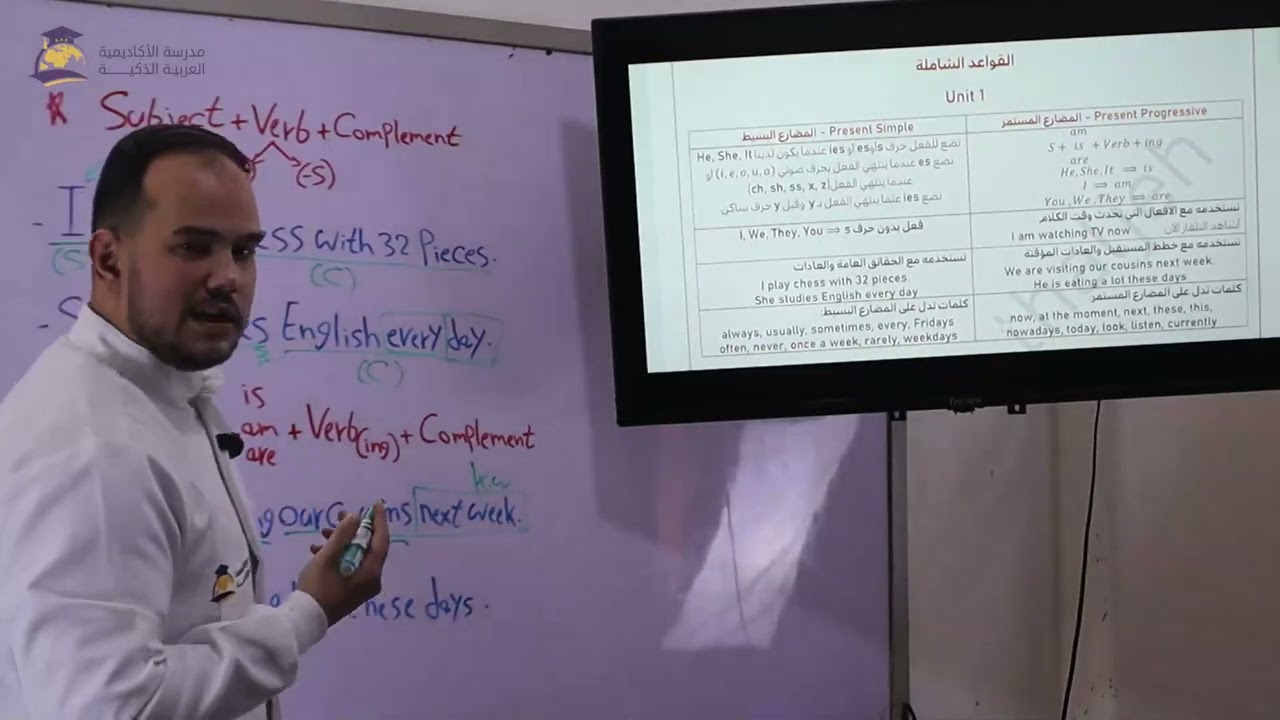 مدرسة الأكاديمية
العربية الذكية
* Subject + Verb + Complement
(-S)
- I
ss with 32 Pieces.
(S
(C)
- S
s English every day.
(C)
is
am + Verb(ing) + Complement
are
k.w
g our Cousins next week.
these days.
القواعد الشاملة
Unit 1
المضارع البسيط - Present Simple
نضع للفعل حرف s أو es أو ies عندما يكون لدينا He, She, It
نضع es عندما ينتهي الفعل بحرف صوتي (i, e, o, u, a) أو
عندما ينتهي الفعل (ch, sh, ss, x, z)
نضع ies عنما ينتهي الفعل د y وقبل y حرف ساكن
I, We, They, You ⟹ s فعل بدون حرف
نستخدمه مع الحقائق العامة والعادات
I play chess with 32 pieces.
She studies English every day
كلمات تدل على المضارع البسيط:
always, usually, sometimes, every, Fridays
often, never, once a week, rarely, weekdays
المضارع المستمر - Present Progressive
am
S + is + Verb + ing
are
He, She, It ⟹ is
I ⟹ am
You, We, They ⟹ are
نستخدمه مع الافعال التي تحدث وقت الكلام
I am watching TV now أشاهد التلفاز الآن
نستخدمه مع خطط المستقبل والعادات المؤقتة
We are visiting our cousins next week.
He is eating a lot these days
كلمات تدل على المضارع المستمر:
now, at the moment, next, these, this,
nowadays, today, look, listen, currently